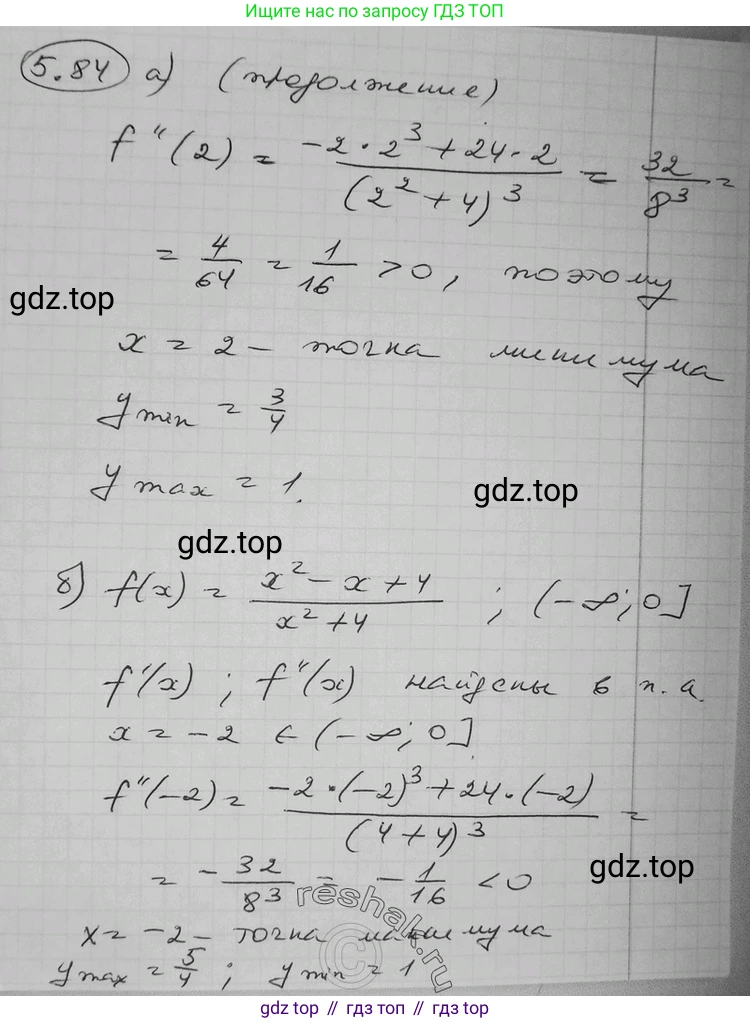 Ищите нас по запросу ГДЗ ТОП
5.84 а) (продолжение)
f''(2) = (-2·2³+24·2)/(2²+4)³ = 32/8³ =
= 4/64 = 1/16 >0, поэтому
gdz.top
x = 2 – точка минимума
y min = 3/4
y max = 1.
gdz.top
gdz.top
б) f(x) = (x²-x+4)/(x²+4) ; (-∞;0]
f'(x) ; f''(x) найдены в п.а.
x = -2 ∈ (-∞;0]
f''(-2) = (-2·(-2)³+24·(-2))/(4+4)³ =
gdz.top
= -32/8³ = -1/16 <0
reshak.ru
©
x = -2 – точка максимума
y max = 5/4 ; y min = 1
gdz.top // гдз топ // gdz.top